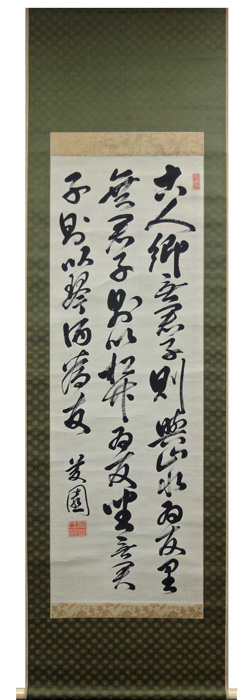 古人郷無君子則與山水為友里
無君子則以松竹為友坐無君
子則以琴酒為友